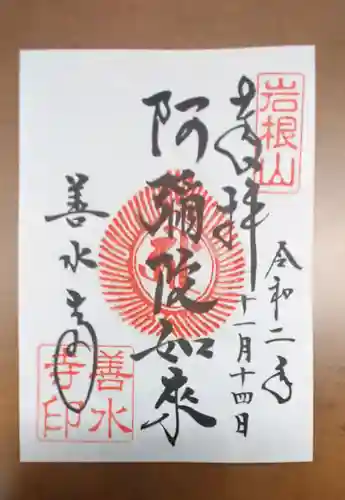 岩根山
奉拝
令和二年
十一月十四日
阿彌陀如來
善水寺
善水
寺印